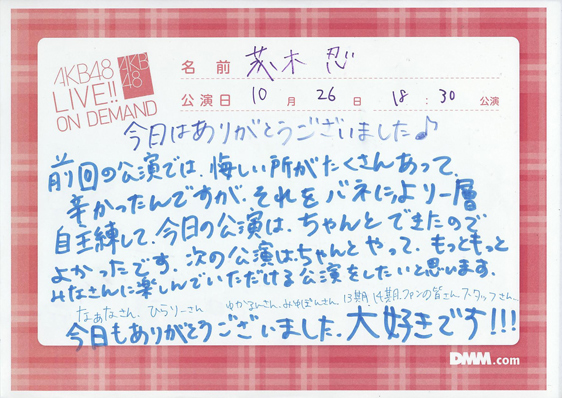 AKB48
LIVE!!
ON DEMAND
AKB
48
名前 茂木 忍
公演日 10月26日 18:30 公演
今日はありがとうございました♪
前回の公演では、悔しい所がたくさんあって、
辛かったんですが、それをバネにより一層
自主練して、今日の公演は、ちゃんとできたので
よかったです。次の公演はちゃんとやって、もっともっと
みなさんに楽しんでいただける公演をしたいと思います。
なぁなさん、ひらりーさん ゆかるんさん、みゆぽんさん、13期、14期、ファンの皆さん、スタッフさん、
今日もありがとうございました、大好きです!!!
DMM.com